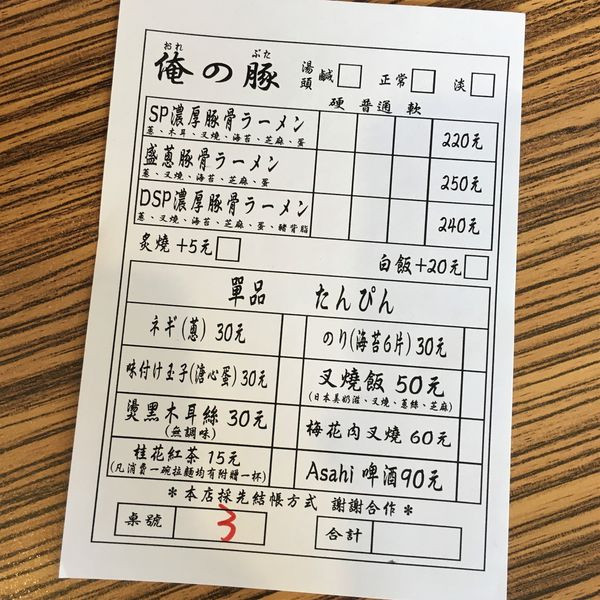 おれ ぶた
俺の豚 湯頭 鹹 正常 淡
硬 普通 軟
SP濃厚豚骨ラーメン 220元
蔥、木耳、叉燒、海苔、芝麻、蛋
盛蔥豚骨ラーメン 250元
蔥、叉燒、海苔、芝麻、蛋
DSP濃厚豚骨ラーメン 240元
蔥、叉燒、海苔、芝麻、蛋、豬背脂
炙燒+5元 白飯+20元
單品 たんぴん
ネギ(蔥) 30元 のり(海苔6片) 30元
味付け玉子(溏心蛋) 30元 叉燒飯 50元
(日本美奶滋、叉燒、蔥絲、芝麻)
燙黑木耳絲 30元 梅花肉叉燒 60元
(無調味)
桂花紅茶 15元 Asahi 啤酒90元
(凡消費一碗拉麵均有附贈一杯)
*本店採先結帳方式 謝謝合作*
桌號 3 合計